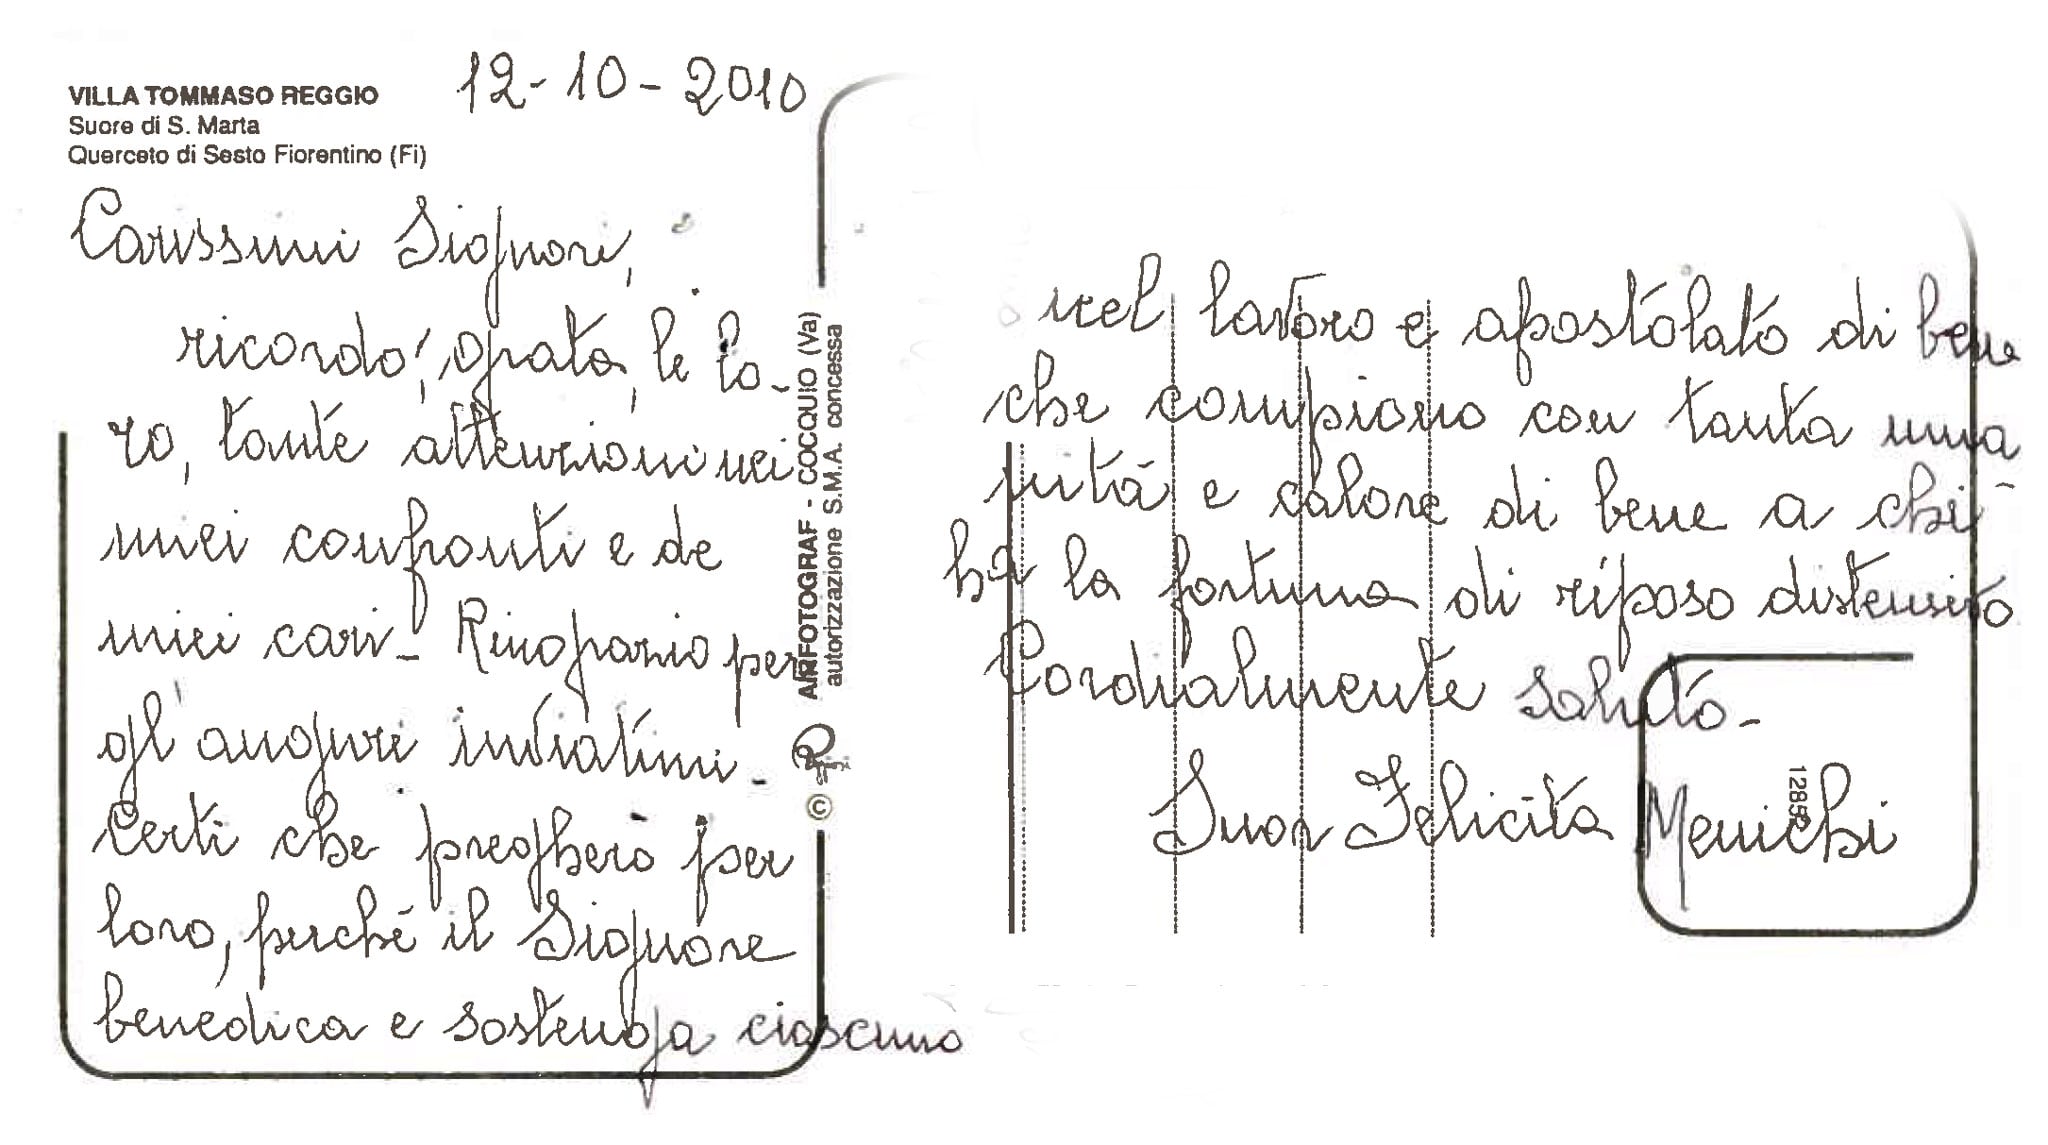 VILLA TOMMASO REGGIO
Suore di S. Marta
Querceto di Sesto Fiorentino (Fi)
12-10-2010
Carissimi Signori,
ricordo, grata, le lo-
ro, tante attenzioni nei
miei confronti e de
miei cari- Ringrazio per
gl'auguri inviatimi-
Certi che pregherò per
loro, perché il Signore
benedica e sostenga ciascuno
AIRFOTOGRAF - COCQUIO (Va)
autorizzazione S.M.A. concessa
©
nel lavoro e apostolato di bene
che compiono con tanta uma
nità e calore di bene a chi
ha la fortuna di riposo distensivo
Cordialmente saluto-
Suor Felicita Menichi
12852